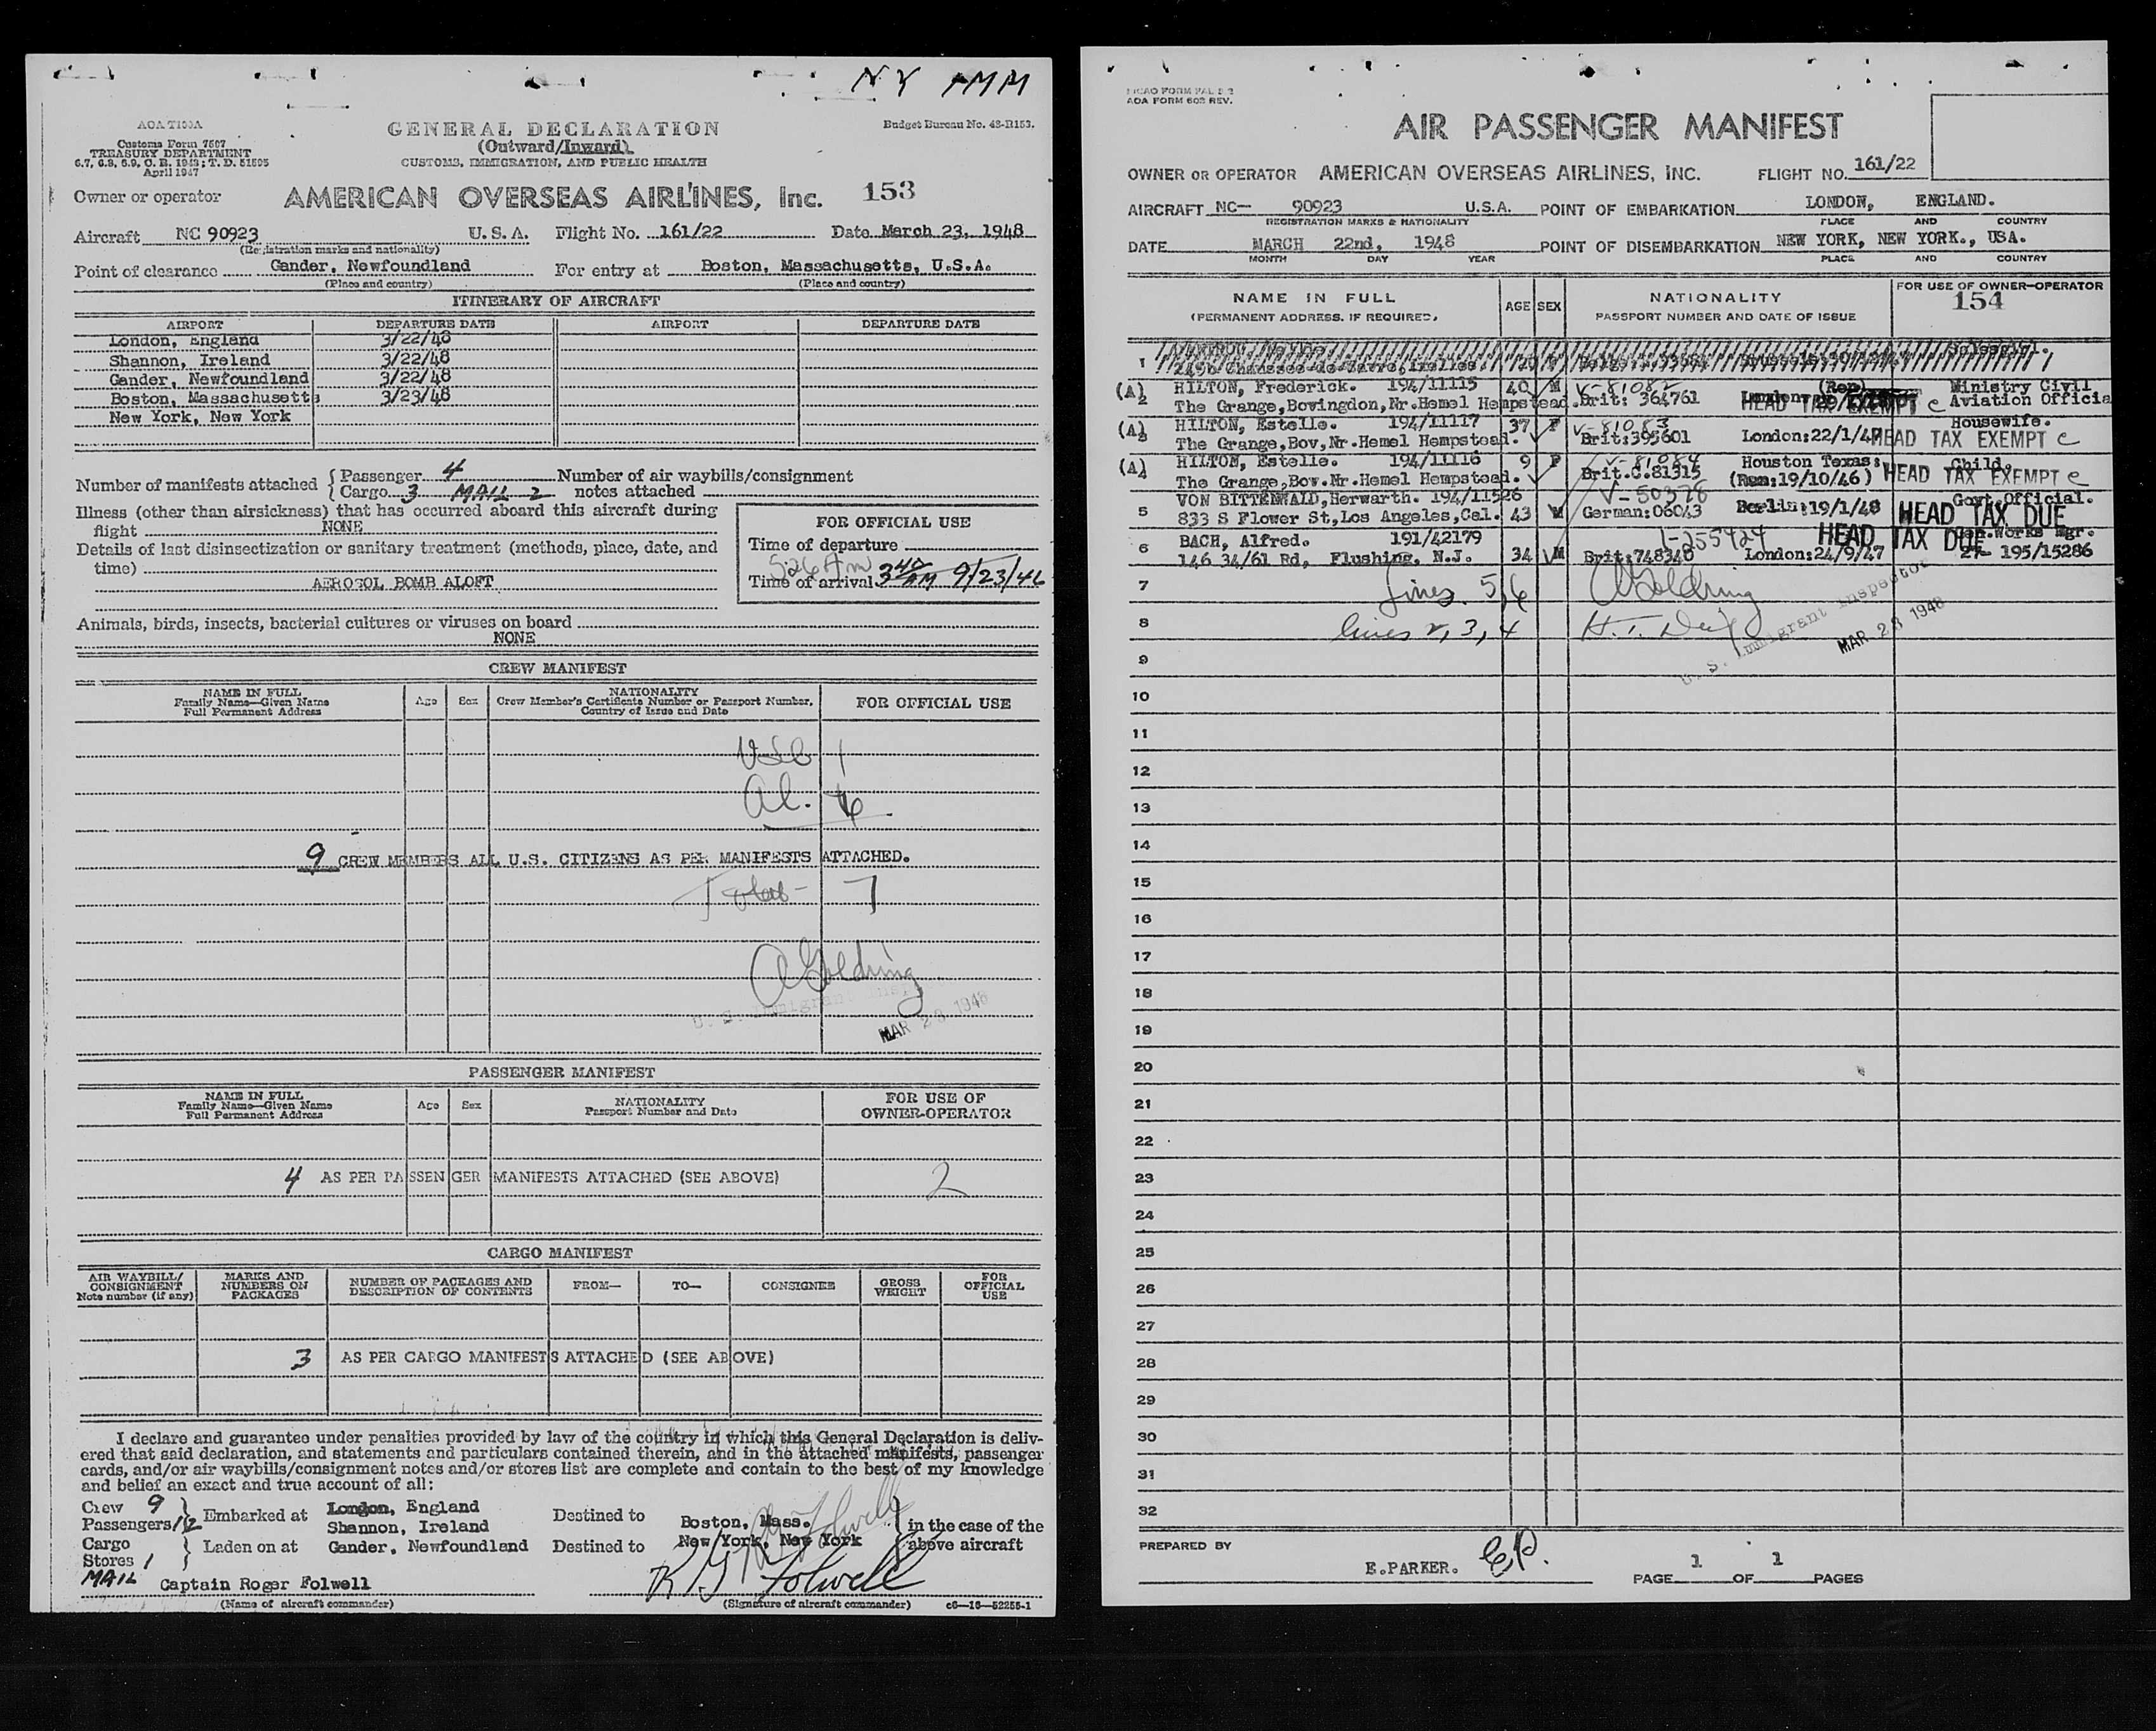 NY AMM
Customs Form 7507
TREASURY DEPARTMENT
6.7, 6.8, 6.9, C. R. 1943; T. D. 51505
April 1947
GENERAL DECLARATION
(Outward/Inward)
CUSTOMS, IMMIGRATION, AND PUBLIC HEALTH
Budget Bureau No. 43-R153.
Owner or operator AMERICAN OVERSEAS AIRLINES, Inc. 153
Aircraft NC 90923 U. S. A. Flight No. 161/22 Date March 23, 1948
(Registration marks and nationality)
Point of clearance Gander, Newfoundland For entry at Boston, Massachusetts, U.S.A.
(Place and country) (Place and country)
ITINERARY OF AIRCRAFT
AIRPORT DEPARTURE DATE AIRPORT DEPARTURE DATE
London, England 3/22/48
Shannon, Ireland 3/22/48
Gander, Newfoundland 3/22/48
Boston, Massachusetts 3/23/48
New York, New York
Number of manifests attached
Passenger 4 Number of air waybills/consignment
Cargo 3 MAIL 2 notes attached
Illness (other than airsickness) that has occurred aboard this aircraft during
flight NONE
Details of last disinsectization or sanitary treatment (methods, place, date, and
time)
AEROSOL BOMB ALOFT
FOR OFFICIAL USE
Time of departure
526 AM
Time of arrival 340 AM 9/23/46
Animals, birds, insects, bacterial cultures or viruses on board
NONE
CREW MANIFEST
NAME IN FULL
Family Name—Given Name
Full Permanent Address
Age Sex
NATIONALITY
Crew Member's Certificate Number or Passport Number,
Country of Issue and Date
FOR OFFICIAL USE
USC 1
Al. 6
9 CREW MEMBERS ALL U.S. CITIZENS AS PER MANIFESTS ATTACHED.
Total - 7
A Goldring
U. S. Immigrant Inspector
MAR 23 1948
PASSENGER MANIFEST
NAME IN FULL
Family Name—Given Name
Full Permanent Address
Age Sex
NATIONALITY
Passport Number and Date
FOR USE OF
OWNER-OPERATOR
4 AS PER PASSENGER MANIFESTS ATTACHED (SEE ABOVE) 2
CARGO MANIFEST
AIR WAYBILL/
CONSIGNMENT
Note number (if any)
MARKS AND
NUMBERS ON
PACKAGES
NUMBER OF PACKAGES AND
DESCRIPTION OF CONTENTS
FROM— TO— CONSIGNEE
GROSS
WEIGHT
FOR
OFFICIAL
USE
3 AS PER CARGO MANIFESTS ATTACHED (SEE ABOVE)
I declare and guarantee under penalties provided by law of the country in which this General Declaration is deliv-
ered that said declaration, and statements and particulars contained therein, and in the attached manifests, passenger
cards, and/or air waybills/consignment notes and/or stores list are complete and contain to the best of my knowledge
and belief an exact and true account of all:
Crew 9
Passengers 12 Embarked at London, England
Shannon, Ireland
Destined to Boston, Mass. in the case of the
Cargo
Stores 1 Laden on at Gander, Newfoundland Destined to New York, New York above aircraft
MAIL
Captain Roger Folwell R G Folwell
(Name of aircraft commander) (Signature of aircraft commander) c6—16—52255-1
AOA FORM 602 REV.
AIR PASSENGER MANIFEST
OWNER OR OPERATOR AMERICAN OVERSEAS AIRLINES, INC. FLIGHT NO. 161/22
AIRCRAFT NC— 90923 U.S.A. POINT OF EMBARKATION LONDON, ENGLAND.
REGISTRATION MARKS & NATIONALITY PLACE AND COUNTRY
DATE MARCH 22nd, 1948 POINT OF DISEMBARKATION NEW YORK, NEW YORK., USA.
MONTH DAY YEAR PLACE AND COUNTRY
NAME IN FULL
(PERMANENT ADDRESS, IF REQUIRED,
AGE SEX
NATIONALITY
PASSPORT NUMBER AND DATE OF ISSUE
FOR USE OF OWNER-OPERATOR
154
1
(A) 2 HILTON, Frederick. 194/11115 40 M V-81082 (Ren) Ministry Civil
The Grange,Bovingdon,Nr.Hemel Hempstead. Brit: 364761 London HEAD TAX EXEMPT C Aviation Officia
(A) 3 HILTON, Estelle. 194/11117 37 F V-81083 Housewife.
The Grange,Bov,Nr.Hemel Hempstead. Brit:395601 London:22/1/47 HEAD TAX EXEMPT C
(A) 4 HILTON, Estelle. 194/11116 9 F V-81084 Houston Texas: Child.
The Grange,Bov.Nr.Hemel Hempstead. Brit.C.81315 (Ren:19/10/46) HEAD TAX EXEMPT C
5 VON BITTENWALD,Herwarth. 194/11526 V-50376 Govt.Official.
833 S Flower St,Los Angeles,Cal. 43 M German:06043 Berlin:19/1/48 HEAD TAX DUE
6 BACH, Alfred. 191/42179 I-255424 HEAD TAX DUE Gen.Works Mgr.
146 34/61 Rd, Flushing, N.J. 34 M Brit:748340 London:24/9/47 27- 195/15286
7 Lines 5,6 A Goldring
8 lines 2, 3, 4
U. S. Immigrant Inspector
MAR 23 1948
9
10
11
12
13
14
15
16
17
18
19
20
21
22
23
24
25
26
27
28
29
30
31
32
PREPARED BY
E.PARKER. EP.
PAGE 1 OF 1 PAGES